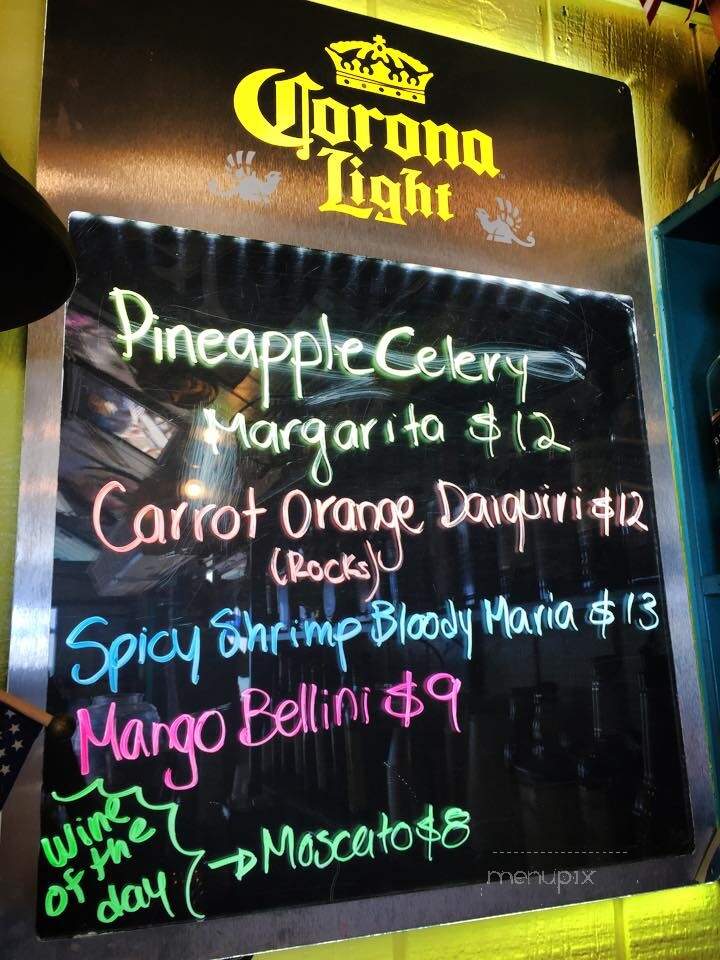 Corona
Light
Pineapple Celery
Margarita $12
Carrot Orange Daiquiri $12
(Rocks)
Spicy Shrimp Bloody Maria $13
Mango Bellini $9
Wine
of the
day
→ Moscato $8
menupix